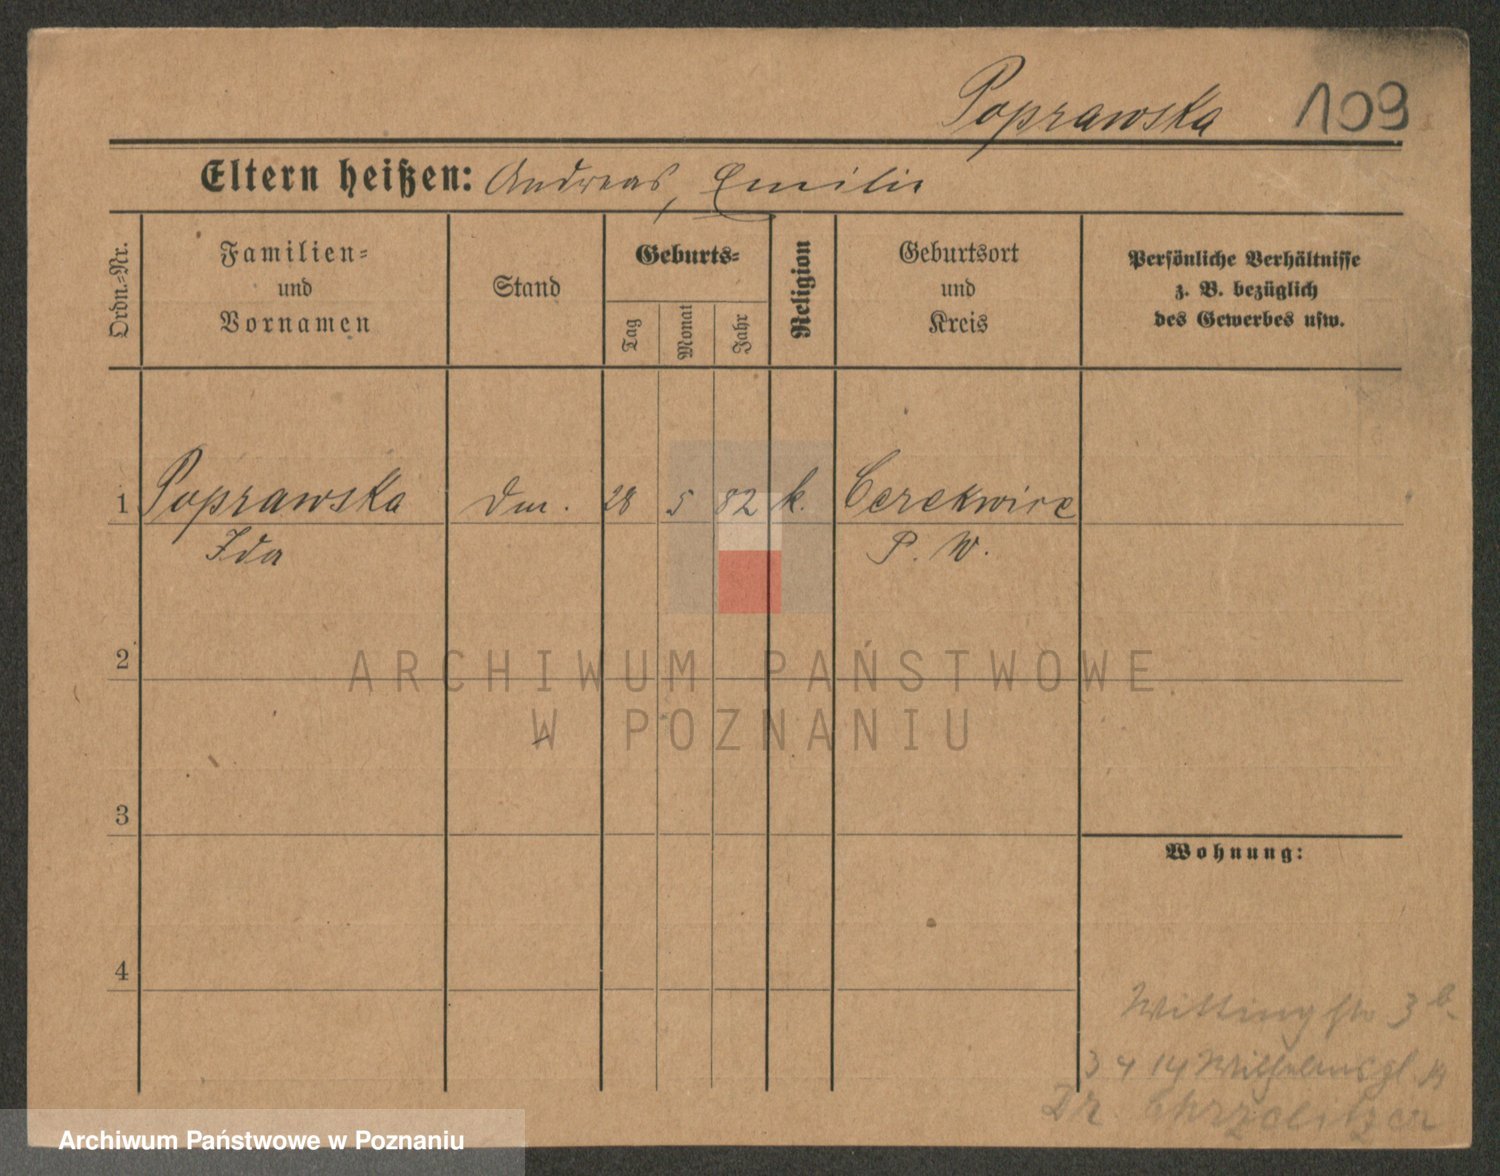 Poprawska 109
Eltern heißen: Andreas, Emilie
Ordn.-Nr.
Familien-
und
Vornamen
Stand
Geburts-
Tag
Monat
Jahr
Religion
Geburtsort
und
Kreis
Persönliche Verhältnisse
z. B. bezüglich
des Gewerbes usw.
1 Poprawska Dm. 28 5 82 k. Cerekwice
Ida P. W.
2
ARCHIWUM PAŃSTWOWE
W POZNANIU
3
Wohnung:
4
Wittingstr 3b.
3 4 14 Wilhelmspl 19
Dr. Chrzelitzer
Archiwum Państwowe w Poznaniu